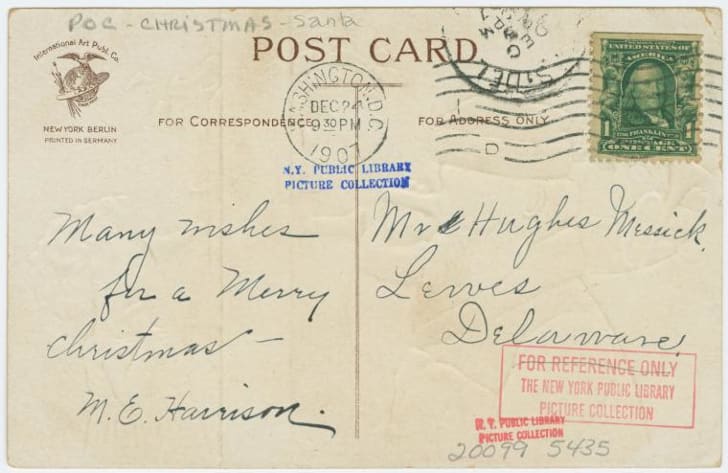 POC - CHRISTMAS - Santa
POST CARD
International Art Publ. Co.
NEW YORK BERLIN
PRINTED IN GERMANY
FOR CORRESPONDENCE
FOR ADDRESS ONLY
WASHINGTON, D.C.
DEC 24
9 30 PM
1907
UNITED STATES OF
AMERICA
FRANKLIN
1 POSTAGE 1
ONE CENT
N.Y. PUBLIC LIBRARY
PICTURE COLLECTION
Many wishes
for a Merry
Christmas —
M. E. Harrison.
Mr Hughes Messick,
Lewes
Delaware,
FOR REFERENCE ONLY
THE NEW YORK PUBLIC LIBRARY
PICTURE COLLECTION
N.Y. PUBLIC LIBRARY
PICTURE COLLECTION
20099 5435